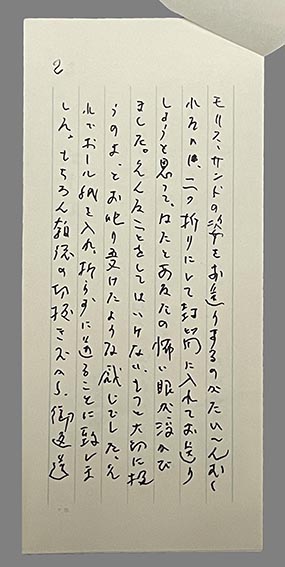 2
モリス・サンドの姿をお送りするのがたいへんおく
れたのは、二つ折りにして封筒に入れてお送り
しようと思って、はたとあなたの怖い眼が浮かび
ました。そんなことをしてはいけない、もっと大切に扱
うのよ、とお叱り受けたような感じでした。そ
れでボール紙を入れ、折らずに送ることに致しま
した。もちろん雑誌の切抜きだから、御返送